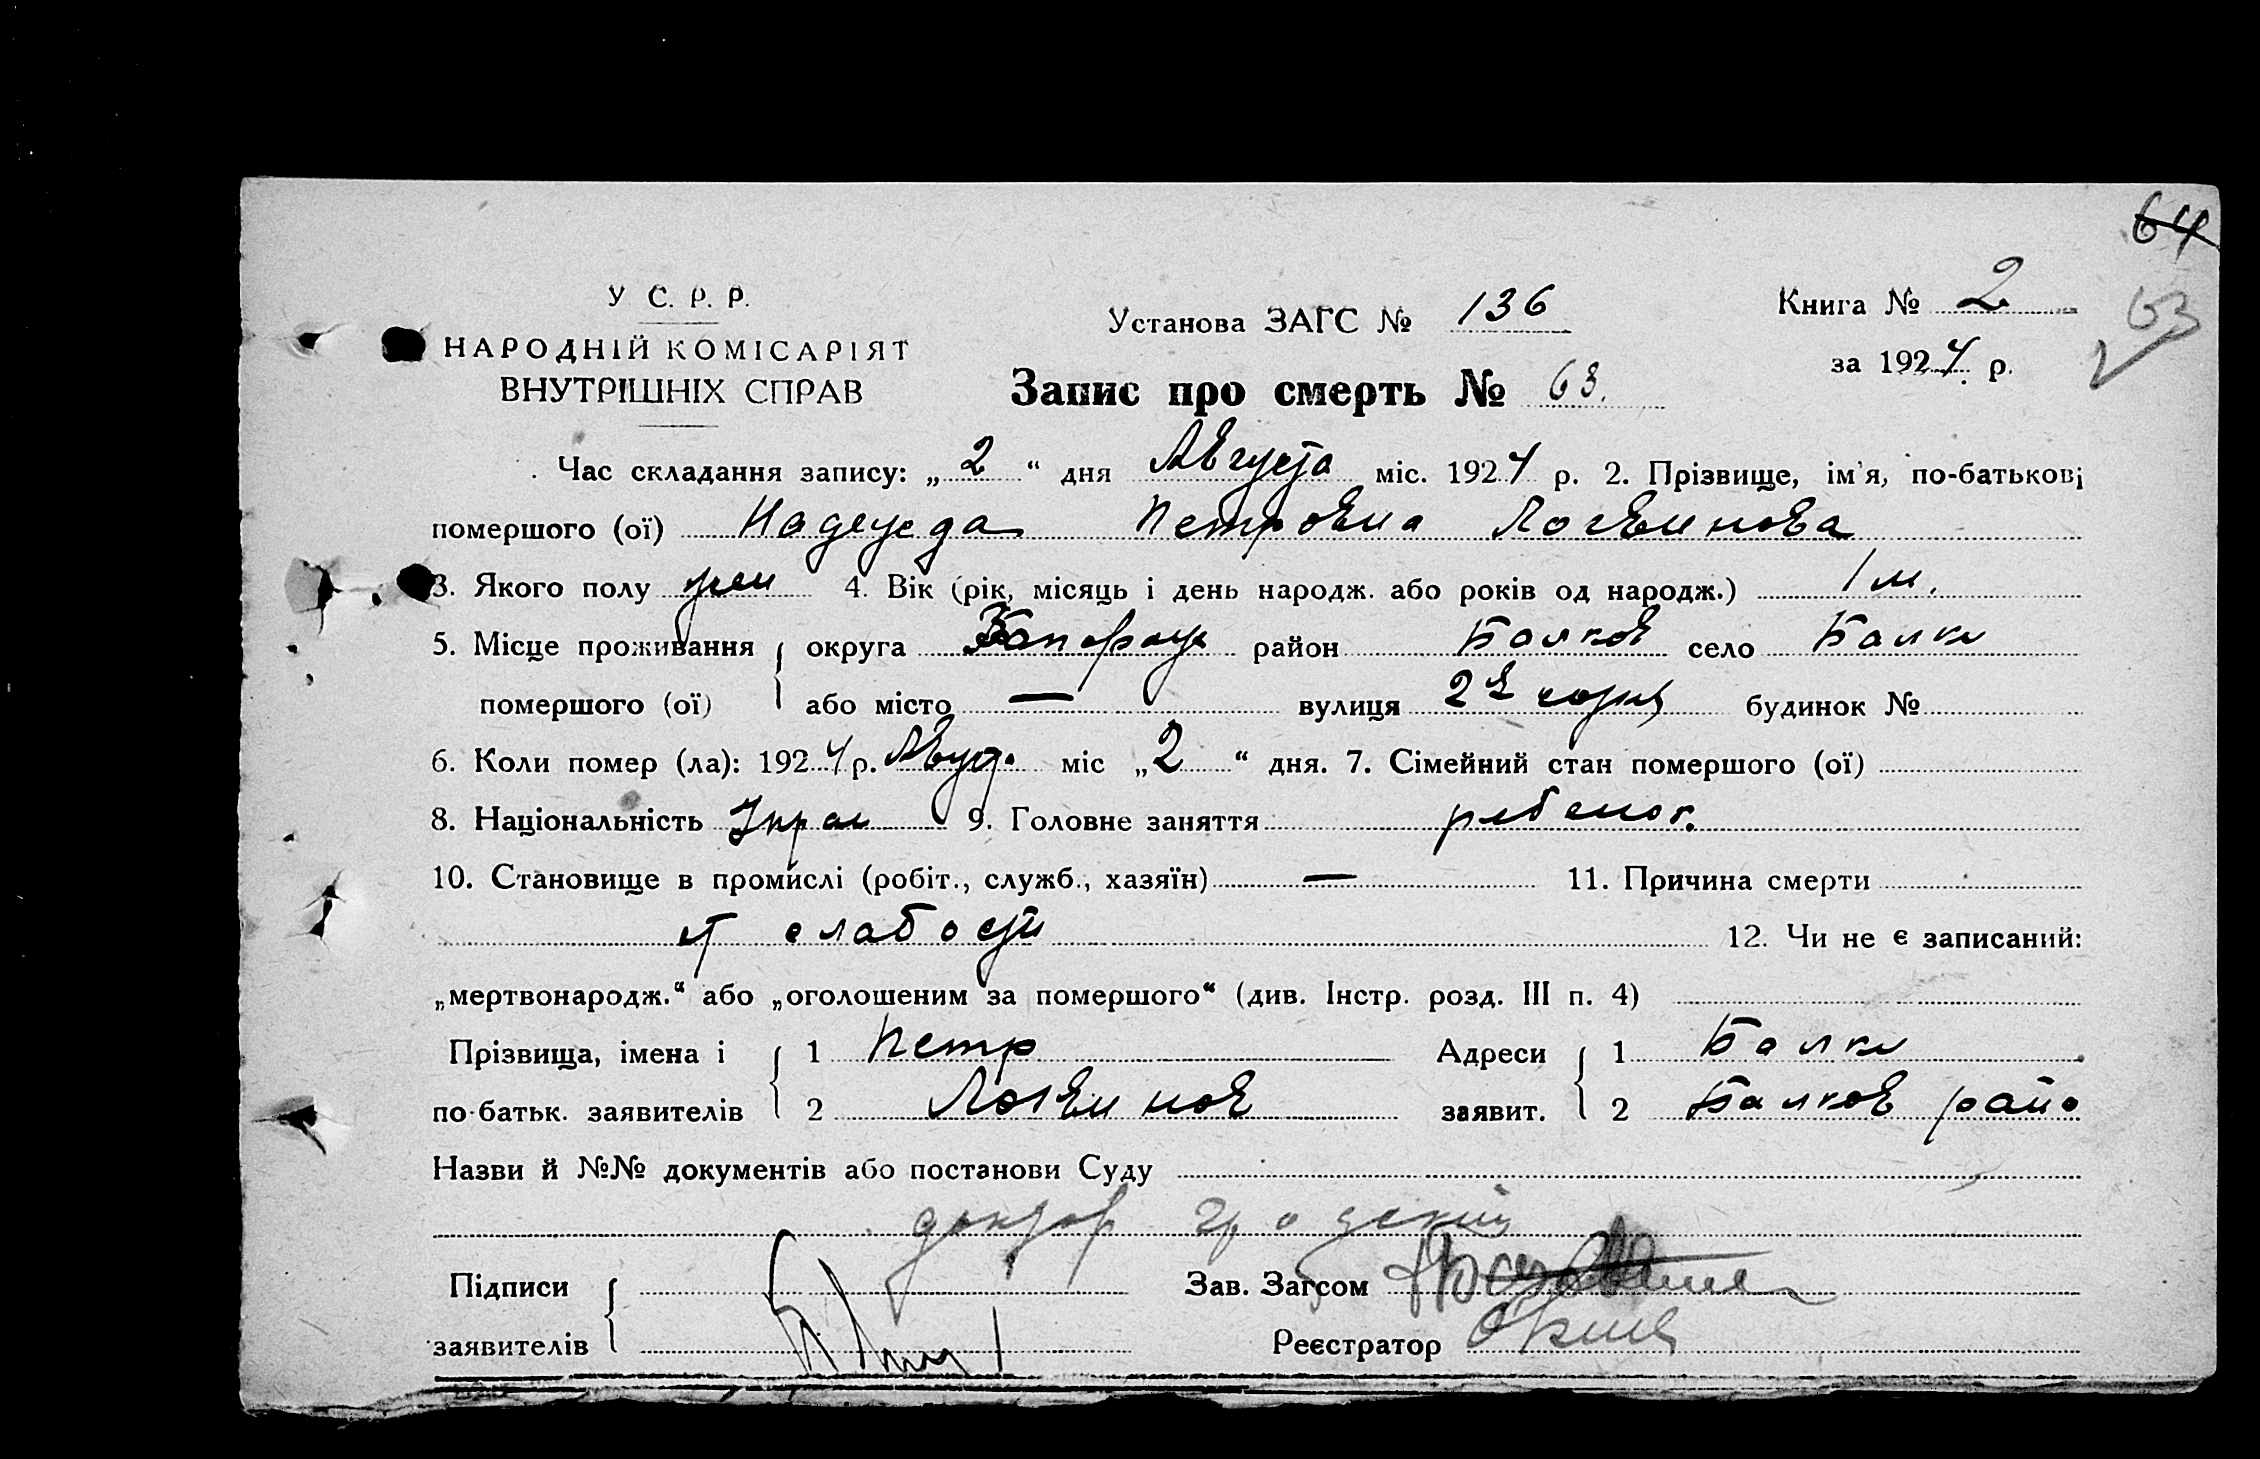 64
У С. Р. Р.
НАРОДНІЙ КОМІСАРІЯТ
ВНУТРІШНІХ СПРАВ
Установа ЗАГС № 136
Книга № 2
63
за 1924 р.
Запис про смерть № 63.
Час складання запису: „2“ дня Августа міс. 1924 р. 2. Прізвище, ім'я, по-батькові
помершого (ої) Надежда Петровна Логвинова
3. Якого полу жен 4. Вік (рік, місяць і день народж. або років од народж.) 1 м.
5. Місце проживання округа Запорож район Балков село Балки
помершого (ої) або місто — вулиця 2я сотня будинок №
6. Коли помер (ла): 1924 р. Август. міс „2“ дня. 7. Сімейний стан помершого (ої)
8. Національність Украи 9. Головне заняття ребенок.
10. Становище в промислі (робіт., служб., хазяїн) — 11. Причина смерти
от слабости 12. Чи не є записаний:
„мертвонародж.“ або „оголошеним за помершого“ (див. Інстр. розд. III п. 4)
Прізвища, імена і 1 Петр Адреси 1 Балки
по-батьк. заявителів 2 Логвинов заявит. 2 Балков райо
Назви й №№ документів або постанови Суду
доктор
Підписи Зав. Загсом
заявителів Реєстратор